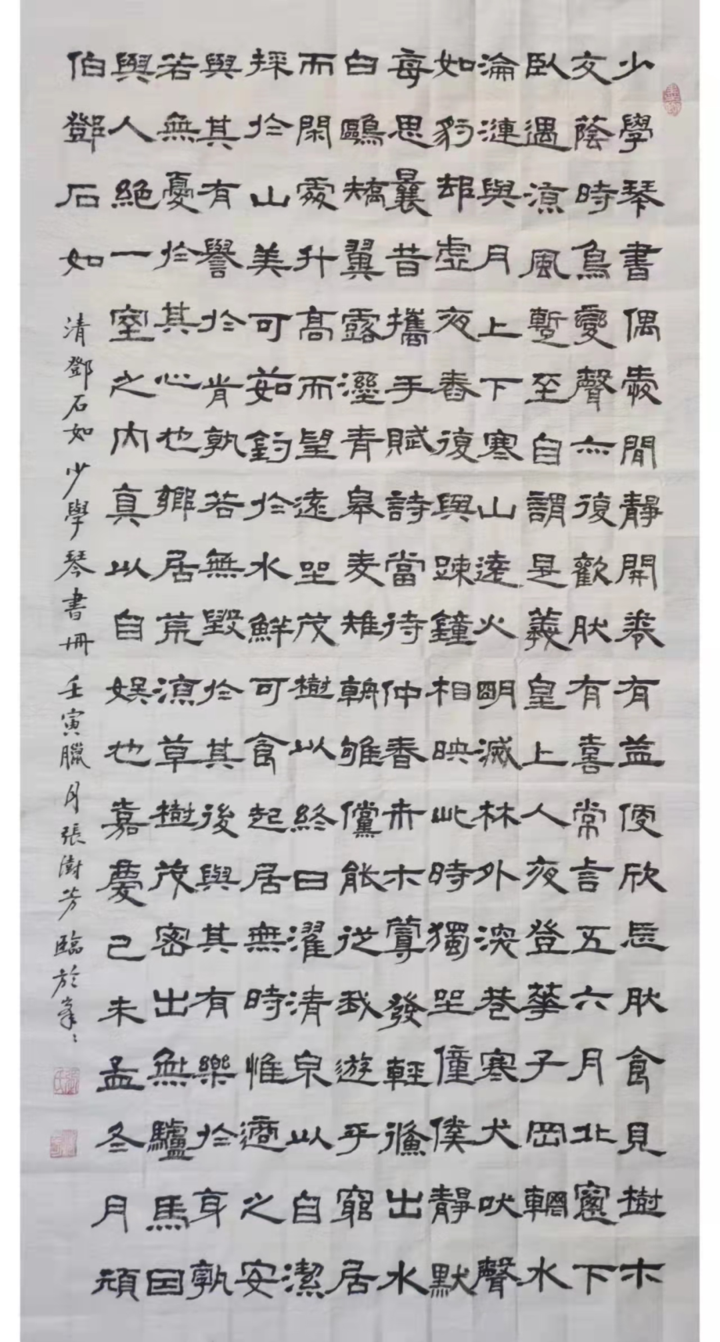 少學琴書偶愛閒靜開卷有益便欣忘肰食見樹木
交蔭時鳥變聲亦復歡肰有喜常言五六月北窗下
臥遇涼風暫至自謂是羲皇上人夜登華子岡輞水
淪漣與月上下寒山遠火明滅林外深巷寒犬吠聲
如豹却虛夜舂復與踈鐘相映此時獨坐僮僕靜默
每思曩昔攜手賦詩當待仲春卉木蔓發輕鯈出水
白鷗矯翼露溼青皋麦雉朝雊儻能從我遊乎窮居
而閑處升高而望遠坐茂樹以終日濯清泉以自潔
採於山美可茹釣於水鮮可食起居無時惟適之安
與其有譽於前孰若無毀於其後與其有樂於身孰
若無憂於其心也鄉居荒涼草樹茂密出無驢馬因
與人絕一室之內真以自娛也嘉慶己未孟冬月頑
伯鄧石如
清鄧石如少學琴書冊壬寅臘月張澍芳臨於